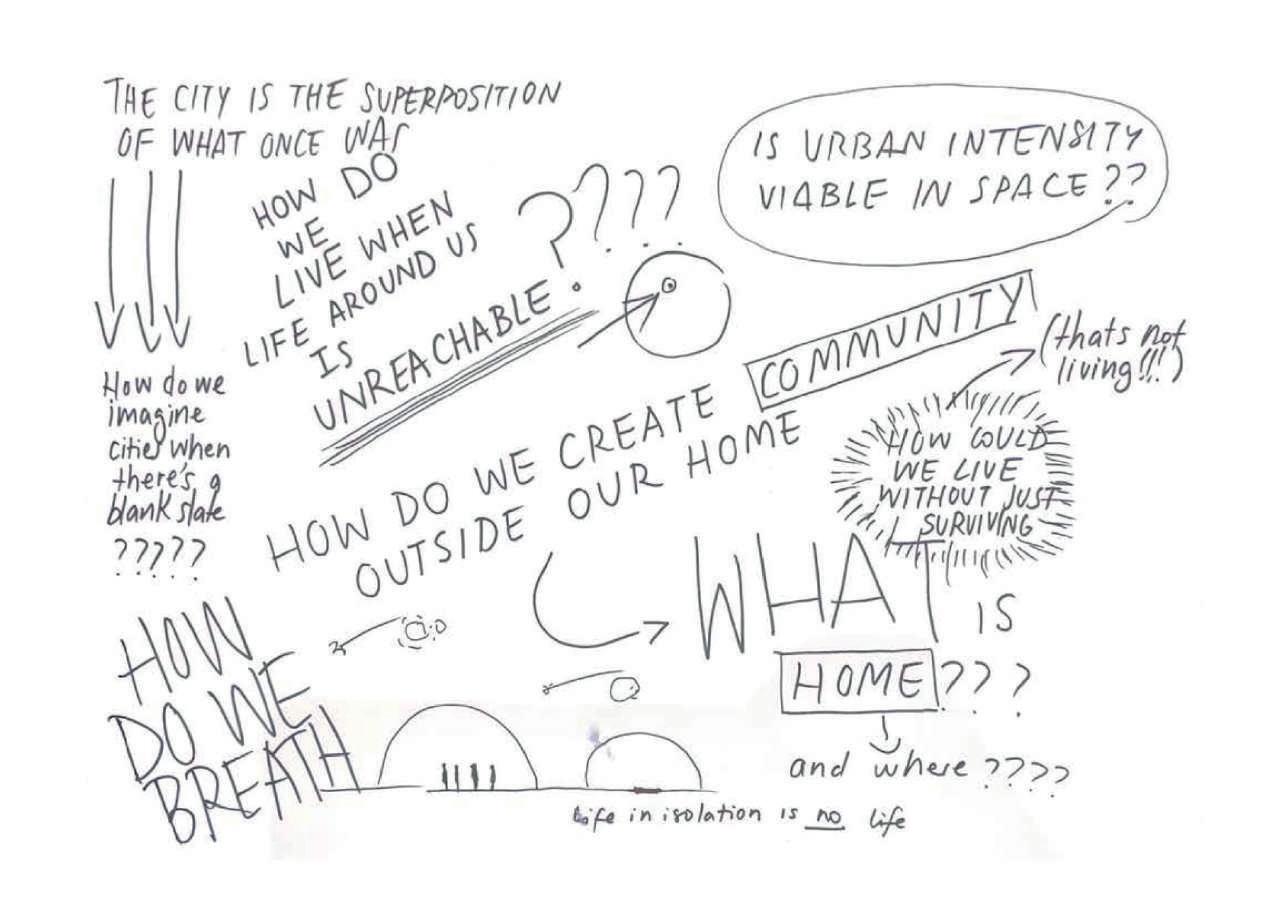 THE CITY IS THE SUPERPOSITION
OF WHAT ONCE WAS
HOW DO
WE
LIVE WHEN
LIFE AROUND US
IS
UNREACHABLE ????
IS URBAN INTENSITY
VIABLE IN SPACE ??
How do we
imagine
cities when
there's a
blank slate
?????
HOW DO WE CREATE COMMUNITY
OUTSIDE OUR HOME
(thats not
living!!!)
HOW COULD
WE LIVE
WITHOUT JUST
SURVIVING
WHAT IS
HOME ???
and where ????
HOW
DO WE
BREATH
Life in isolation is no life